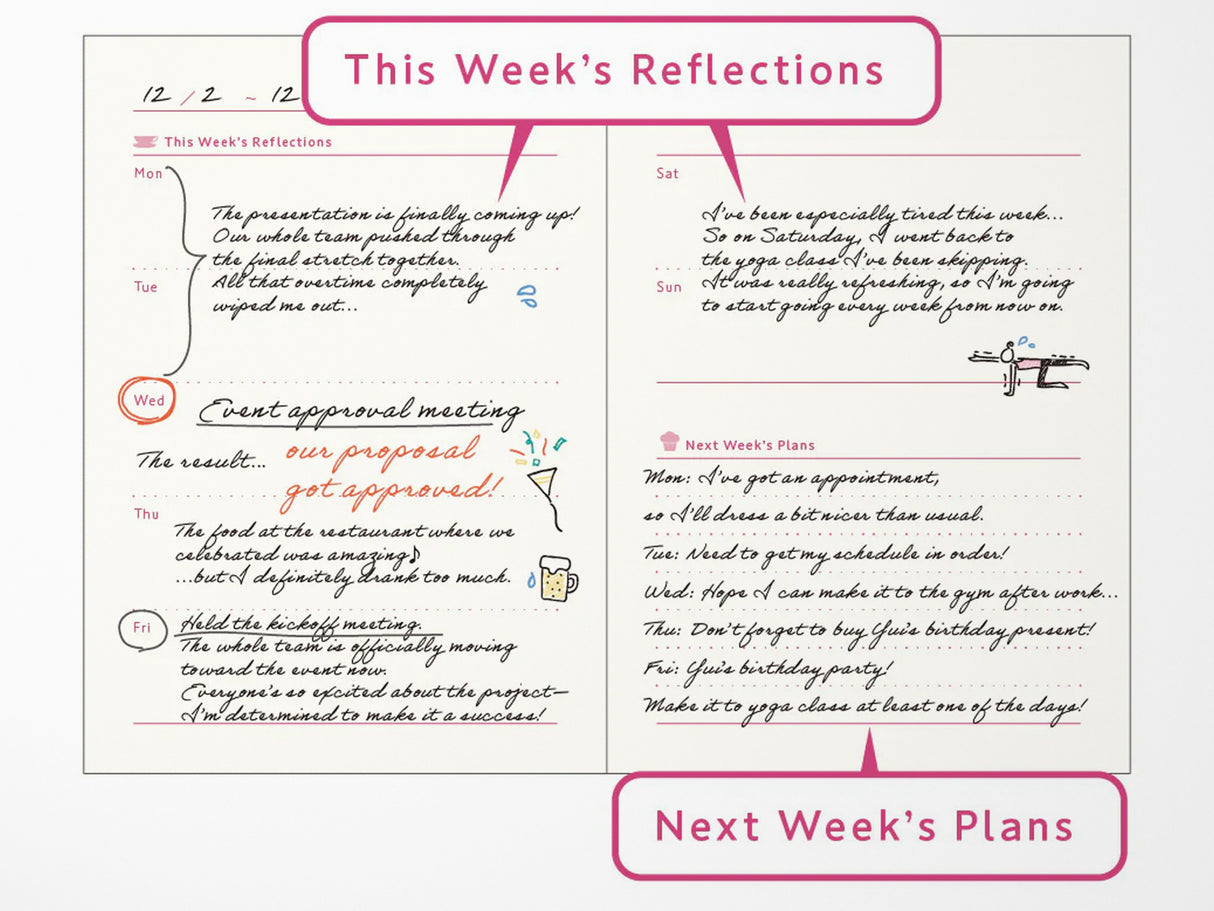 This Week's Reflections
12 / 2 ~ 12
This Week's Reflections
Mon
The presentation is finally coming up!
Our whole team pushed through
the final stretch together.
Tue
All that overtime completely
wiped me out...
Wed
Event approval meeting
The result... our proposal
got approved!
Thu
The food at the restaurant where we
celebrated was amazing♪
...but I definitely drank too much.
Fri
Held the kickoff meeting.
The whole team is officially moving
toward the event now.
Everyone's so excited about the project—
I'm determined to make it a success!
Sat
I've been especially tired this week...
So on Saturday, I went back to
the yoga class I've been skipping.
Sun
It was really refreshing, so I'm going
to start going every week from now on.
Next Week's Plans
Mon: I've got an appointment,
so I'll dress a bit nicer than usual.
Tue: Need to get my schedule in order!
Wed: Hope I can make it to the gym after work...
Thu: Don't forget to buy Yui's birthday present!
Fri: Yui's birthday party!
Make it to yoga class at least one of the days!
Next Week's Plans